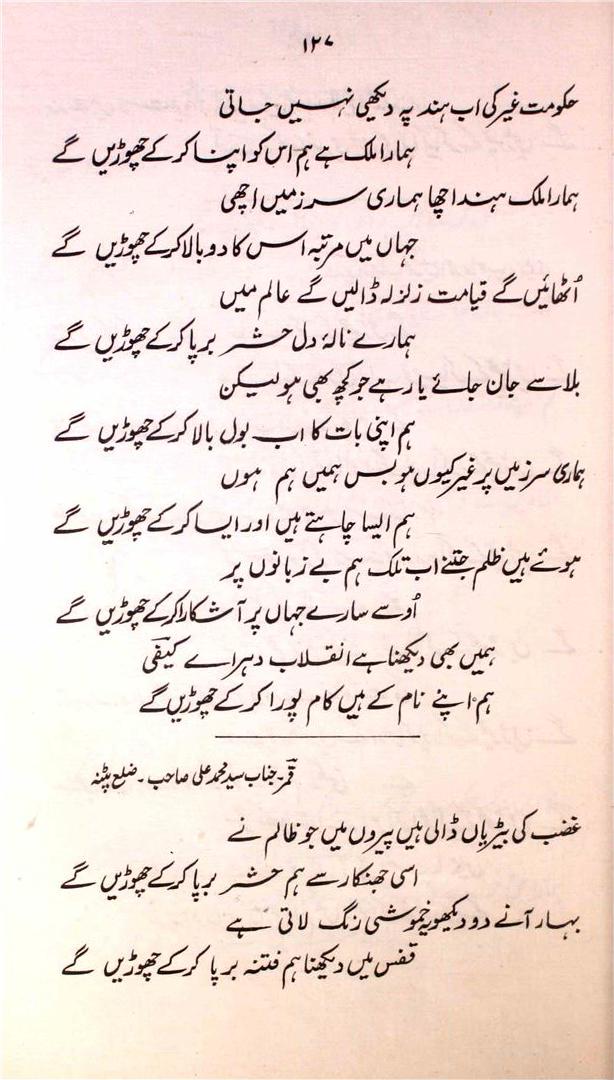 ۱۲۷
حکومت غیر کی اب ہند پہ دیکھی نہیں جاتی
ہمارا ملک ہے ہم اس کو اپنا کر کے چھوڑیں گے
ہمارا ملک ہند اچھا ہماری سرزمیں اچھی
جہاں میں مرتبہ اس کا دوبالا کر کے چھوڑیں گے
اُٹھائیں گے قیامت زلزلہ ڈالیں گے عالم میں
ہمارے نالۂ دل حشر برپا کر کے چھوڑیں گے
بلا سے جان جائے یا رہے جو کچھ بھی ہو لیکن
ہم اپنی بات کا اب بول بالا کر کے چھوڑیں گے
ہماری سرزمیں پر غیر کیوں ہو بس ہمیں ہم ہوں
ہم ایسا چاہتے ہیں اور ایسا کر کے چھوڑیں گے
ہوئے ہیں ظلم جتنے اب تلک ہم بے زبانوں پر
اُوسے سارے جہاں پر آشکارا کر کے چھوڑیں گے
ہمیں بھی دیکھنا ہے انقلاب دہر اے کیفی
ہم اپنے نام کے ہیں کام پورا کر کے چھوڑیں گے
قمر۔ جناب سید محمد علی صاحب۔ ضلع پٹنہ
غضب کی بیڑیاں ڈالی ہیں پیروں میں جو ظالم نے
اسی جھنکار سے ہم حشر برپا کر کے چھوڑیں گے
بہار آنے دو دیکھو یہ خموشی رنگ لاتی ہے
قفس میں دیکھنا ہم فتنہ برپا کر کے چھوڑیں گے